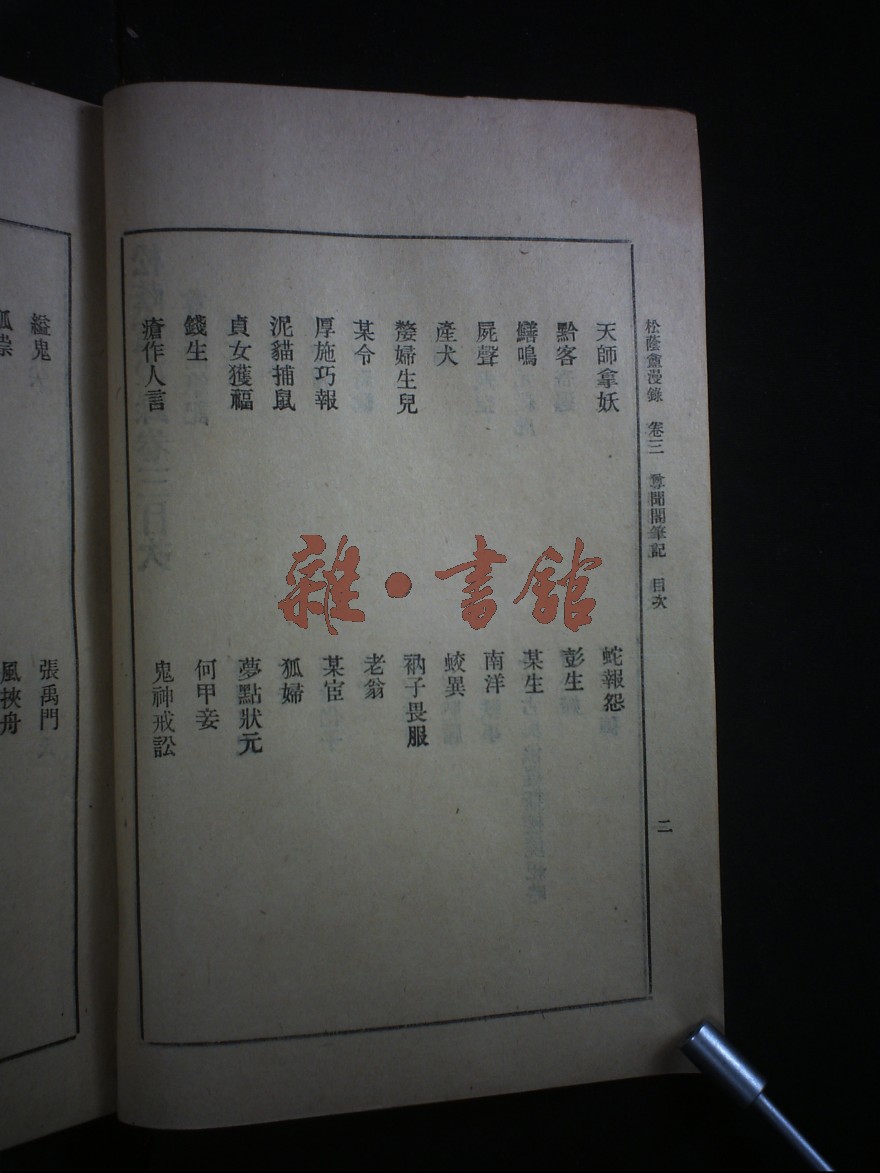 松蔭盦漫錄 卷三 尊聞閣筆記 目次
二
天師拿妖
蛇報怨
黔客
彭生
鱔鳴
某生
屍聲
南洋
產犬
蛟異
嫠婦生兒
衲子畏服
某令
老翁
厚施巧報
某宦
泥貓捕鼠
狐婦
貞女獲福
夢點狀元
錢生
何甲妾
瘡作人言
鬼神戒訟
縊鬼
張禹門
狐祟
風挾舟
雜·書館